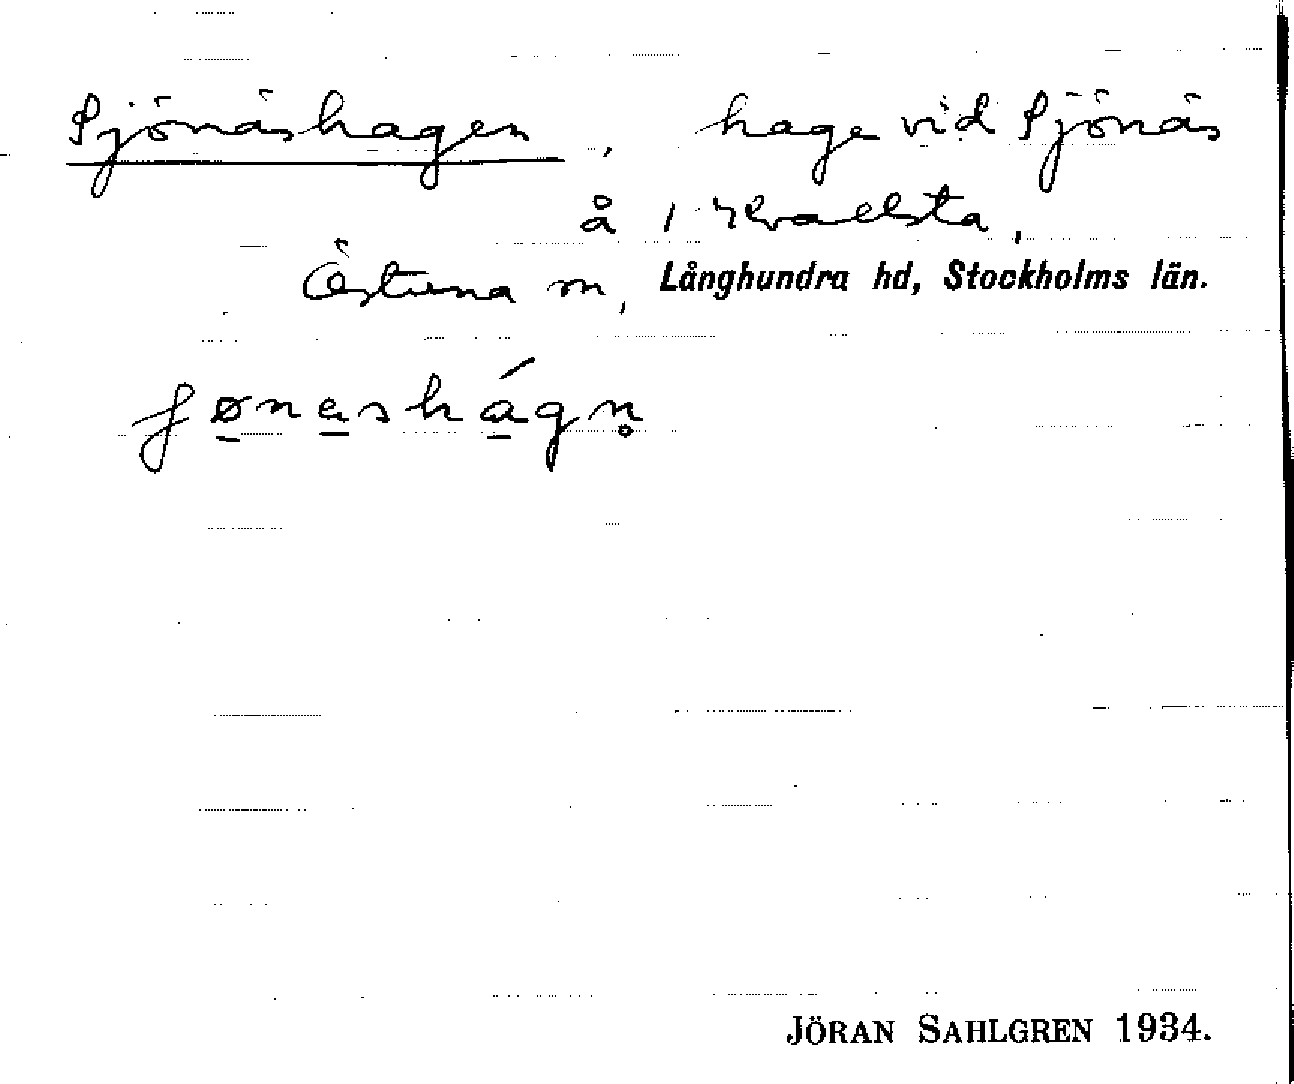 Sjönäshagen, hage vid Sjönäs
å 1 Kvallsta,
Östuna sn, Långhundra hd, Stockholms län.
JÖRAN SAHLGREN 1934.